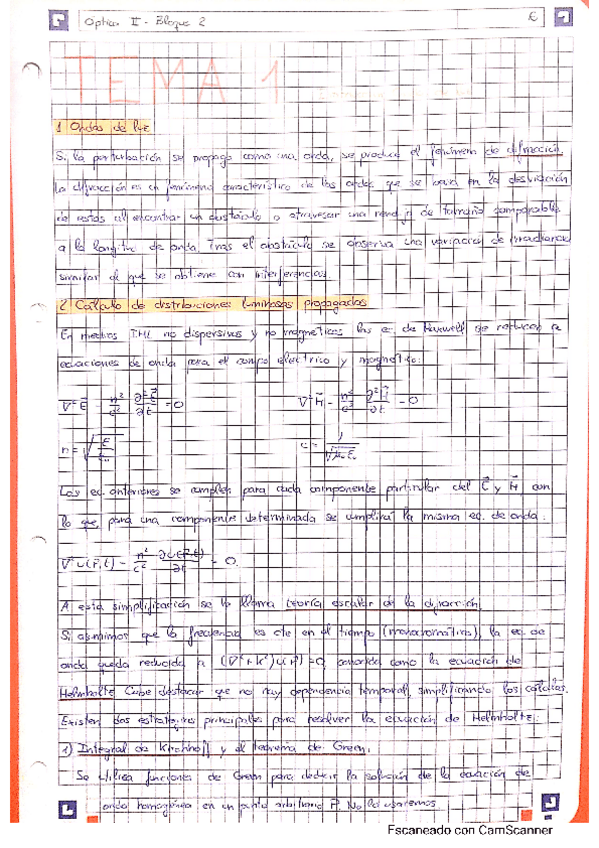 Óptica II - Bloque 2
TEMA 1
1 Ondas de luz
Si la perturbación se propaga como una onda, se produce el fenómeno de difracción.
La difracción es un fenómeno característico de las ondas que se basa en la desviación
de estas al encontrar un obstáculo o atravesar una rendija de tamaño comparable
a la longitud de onda. Tras el obstáculo se observa una variación de irradiancia
similar al que se obtiene con interferencias.
2 Cálculo de distribuciones luminosas propagadas
En medios LHI no dispersivos y no magnéticos las ec. de Maxwell se reducen a
ecuaciones de onda para el campo eléctrico y magnético:
∇²E - n²/c² ∂²E/∂t = 0 ∇²H - n²/c² ∂²H/∂t = 0
n = √(ε/ε₀) c = 1/√(μ₀ε₀)
Las ec. anteriores se cumplen para cada componente particular del E y H con
lo que, para una componente determinada se cumplirá la misma ec. de onda.
∇²u(r,t) - n²/c² ∂u(r,t)/∂t = 0.
A esta simplificación se la llama teoría escalar de la difracción.
Si asumimos que la frecuencia es cte en el tiempo (monocromática), la ec. de
onda queda reducida a (∇²+k²)u(r) = 0, conocida como la ecuación de
Helmholtz. Cabe destacar que no hay dependencia temporal, simplificando los cálculos.
Existen dos estrategias principales para resolver la ecuación de Helmholtz:
1) Integral de Kirchhoff y el teorema de Green.
Se utiliza funciones de Green para deducir la solución de la ecuación de
onda homogénea en un punto arbitrario P. No lo usaremos
Escaneado con CamScanner